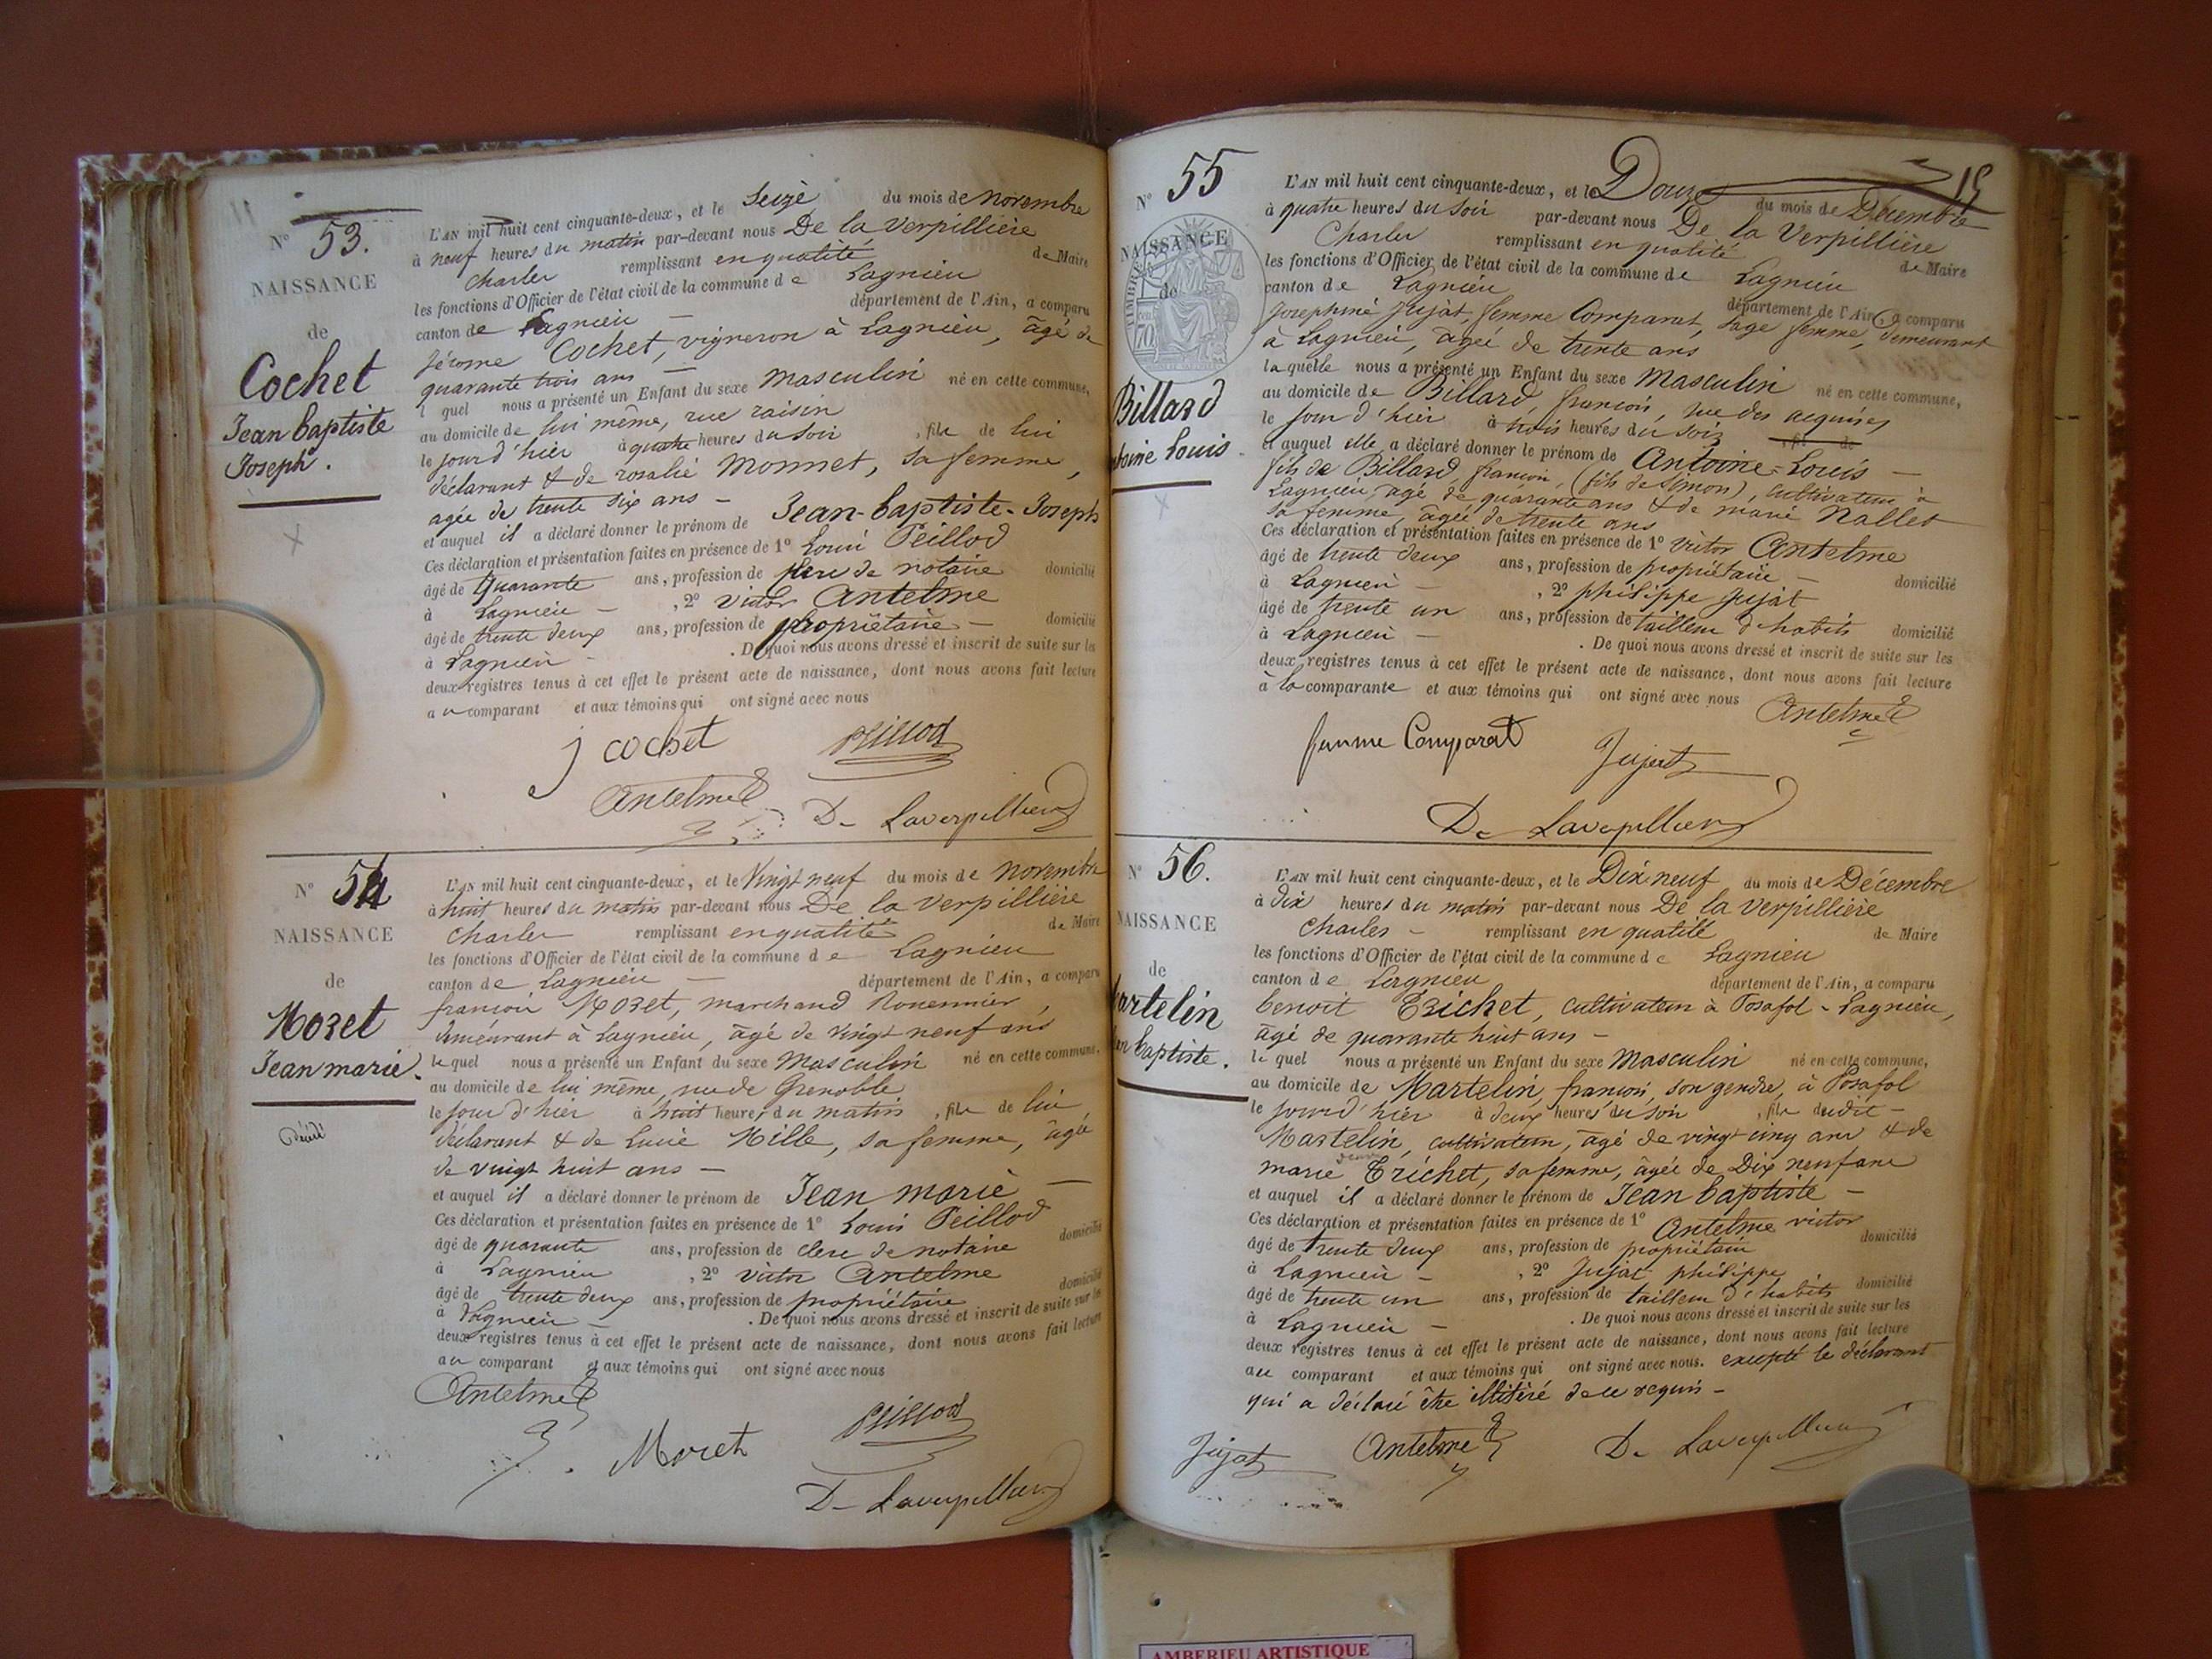 N° 53.
NAISSANCE
de
Cochet
Jean baptiste
Joseph.
L'AN mil huit cent cinquante-deux, et le Seize du mois de Novembre
à neuf heures du matin par-devant nous De la Verpillière
Charles remplissant en qualité de Maire
les fonctions d'Officier de l'état civil de la commune de Lagnieu
canton de Lagnieu département de l'Ain, a comparu
Jérome Cochet, vigneron à Lagnieu, âgé de
quarante trois ans —
l quel nous a présenté un Enfant du sexe Masculin né en cette commune,
au domicile de lui même, rue raisin
le jour d'hier à quatre heures du soir , fils de lui
déclarant & de rosalie Monnet, sa femme,
agée de trente six ans —
et auquel il a déclaré donner le prénom de Jean-baptiste-Joseph
Ces déclaration et présentation faites en présence de 1° Louis Peillod
âgé de Quarante ans, profession de clerc de notaire domicilié
à Lagnieu — , 2° Victor Antelme
âgé de trente deux ans, profession de propriétaire — domicilié
à Lagnieu — . De quoi nous avons dressé et inscrit de suite sur les
deux registres tenus à cet effet le présent acte de naissance, dont nous avons fait lecture
au comparant et aux témoins qui ont signé avec nous
j cochet Peillod
Antelme De Laverpilliere
N° 54
NAISSANCE
de
Moret
Jean marie.
Décédé
L'AN mil huit cent cinquante-deux, et le Vingt neuf du mois de Novembre
à huit heures du matin par-devant nous De la Verpillière
Charles remplissant en qualité de Maire
les fonctions d'Officier de l'état civil de la commune de Lagnieu
canton de Lagnieu — département de l'Ain, a comparu
françois Moret, marchand Rouennier,
demeurant à Lagnieu, âgé de vingt neuf ans
lequel nous a présenté un Enfant du sexe Masculin né en cette commune,
au domicile de lui même, rue de Grenoble
le jour d'hier à huit heures du matin , fils de lui
déclarant & de Lucie Mille, sa femme, âgée
de vingt huit ans —
et auquel il a déclaré donner le prénom de Jean marie —
Ces déclaration et présentation faites en présence de 1° Louis Peillod
âgé de quarante ans, profession de clerc de notaire domicilié
à Lagnieu , 2° Victor Antelme
âgé de trente deux ans, profession de propriétaire domicilié
à Lagnieu — . De quoi nous avons dressé et inscrit de suite sur les
deux registres tenus à cet effet le présent acte de naissance, dont nous avons fait lecture
au comparant et aux témoins qui ont signé avec nous
Antelme Peillod
Moret
De Laverpilliere
15
N° 55
NAISSANCE
de
Billard
toine Louis.
L'AN mil huit cent cinquante-deux, et le Douze du mois de Décembre
à quatre heures du soir par-devant nous De la Verpillière
Charles remplissant en qualité de Maire
les fonctions d'Officier de l'état civil de la commune de Lagnieu
canton de Lagnieu département de l'Ain, a comparu
Josephine Jujat, femme Comparat, sage femme, demeurant
à Lagnieu, âgée de trente ans
laquelle nous a présenté un Enfant du sexe Masculin né en cette commune,
au domicile de Billard, françois, rue des acquises
le jour d'hier à trois heures du soir , fil de
et auquel elle a déclaré donner le prénom de Antoine-Louis —
fils de Billard, françois, (fils de Simon), cultivateur à
Lagnieu, âgé de quarante ans & de marie Nallet
sa femme, âgée de trente ans
Ces déclaration et présentation faites en présence de 1° Victor Antelme
âgé de trente deux ans, profession de propriétaire — domicilié
à Lagnieu — , 2° philippe Jujat
âgé de trente un ans, profession de tailleur d'habits domicilié
à Lagnieu — . De quoi nous avons dressé et inscrit de suite sur les
deux registres tenus à cet effet le présent acte de naissance, dont nous avons fait lecture
à la comparante et aux témoins qui ont signé avec nous Antelme
femme Comparat Jujat
De Laverpilliere
N° 56.
NAISSANCE
de
artelin
baptiste.
L'AN mil huit cent cinquante-deux, et le Dix-neuf du mois de Décembre
à dix heures du matin par-devant nous De la Verpillière
Charles — remplissant en qualité de Maire
les fonctions d'Officier de l'état civil de la commune de Lagnieu
canton de Lagnieu département de l'Ain, a comparu
benoit Trichet, cultivateur à Posafol-Lagnieu,
âgé de quarante huit ans —
lequel nous a présenté un Enfant du sexe Masculin né en cette commune,
au domicile de Martelin, françois, son gendre, à Posafol
le jour d'hier à deux heures du soir , fils dudit —
Martelin, cultivateur, âgé de vingt cinq ans & de
marie Trichet, sa femme, âgée de Dix neuf ans
et auquel il a déclaré donner le prénom de Jean baptiste —
Ces déclaration et présentation faites en présence de 1° Antelme victor
âgé de trente deux ans, profession de propriétaire domicilié
à Lagnieu — , 2° Jujat philippe
âgé de trente un ans, profession de tailleur d'habits domicilié
à Lagnieu — . De quoi nous avons dressé et inscrit de suite sur les
deux registres tenus à cet effet le présent acte de naissance, dont nous avons fait lecture
au comparant et aux témoins qui ont signé avec nous. excepté le déclarant
qui a déclaré être illitéré de ce requis —
Jujat Antelme De Laverpilliere
AMBERIEU ARTISTIQUE